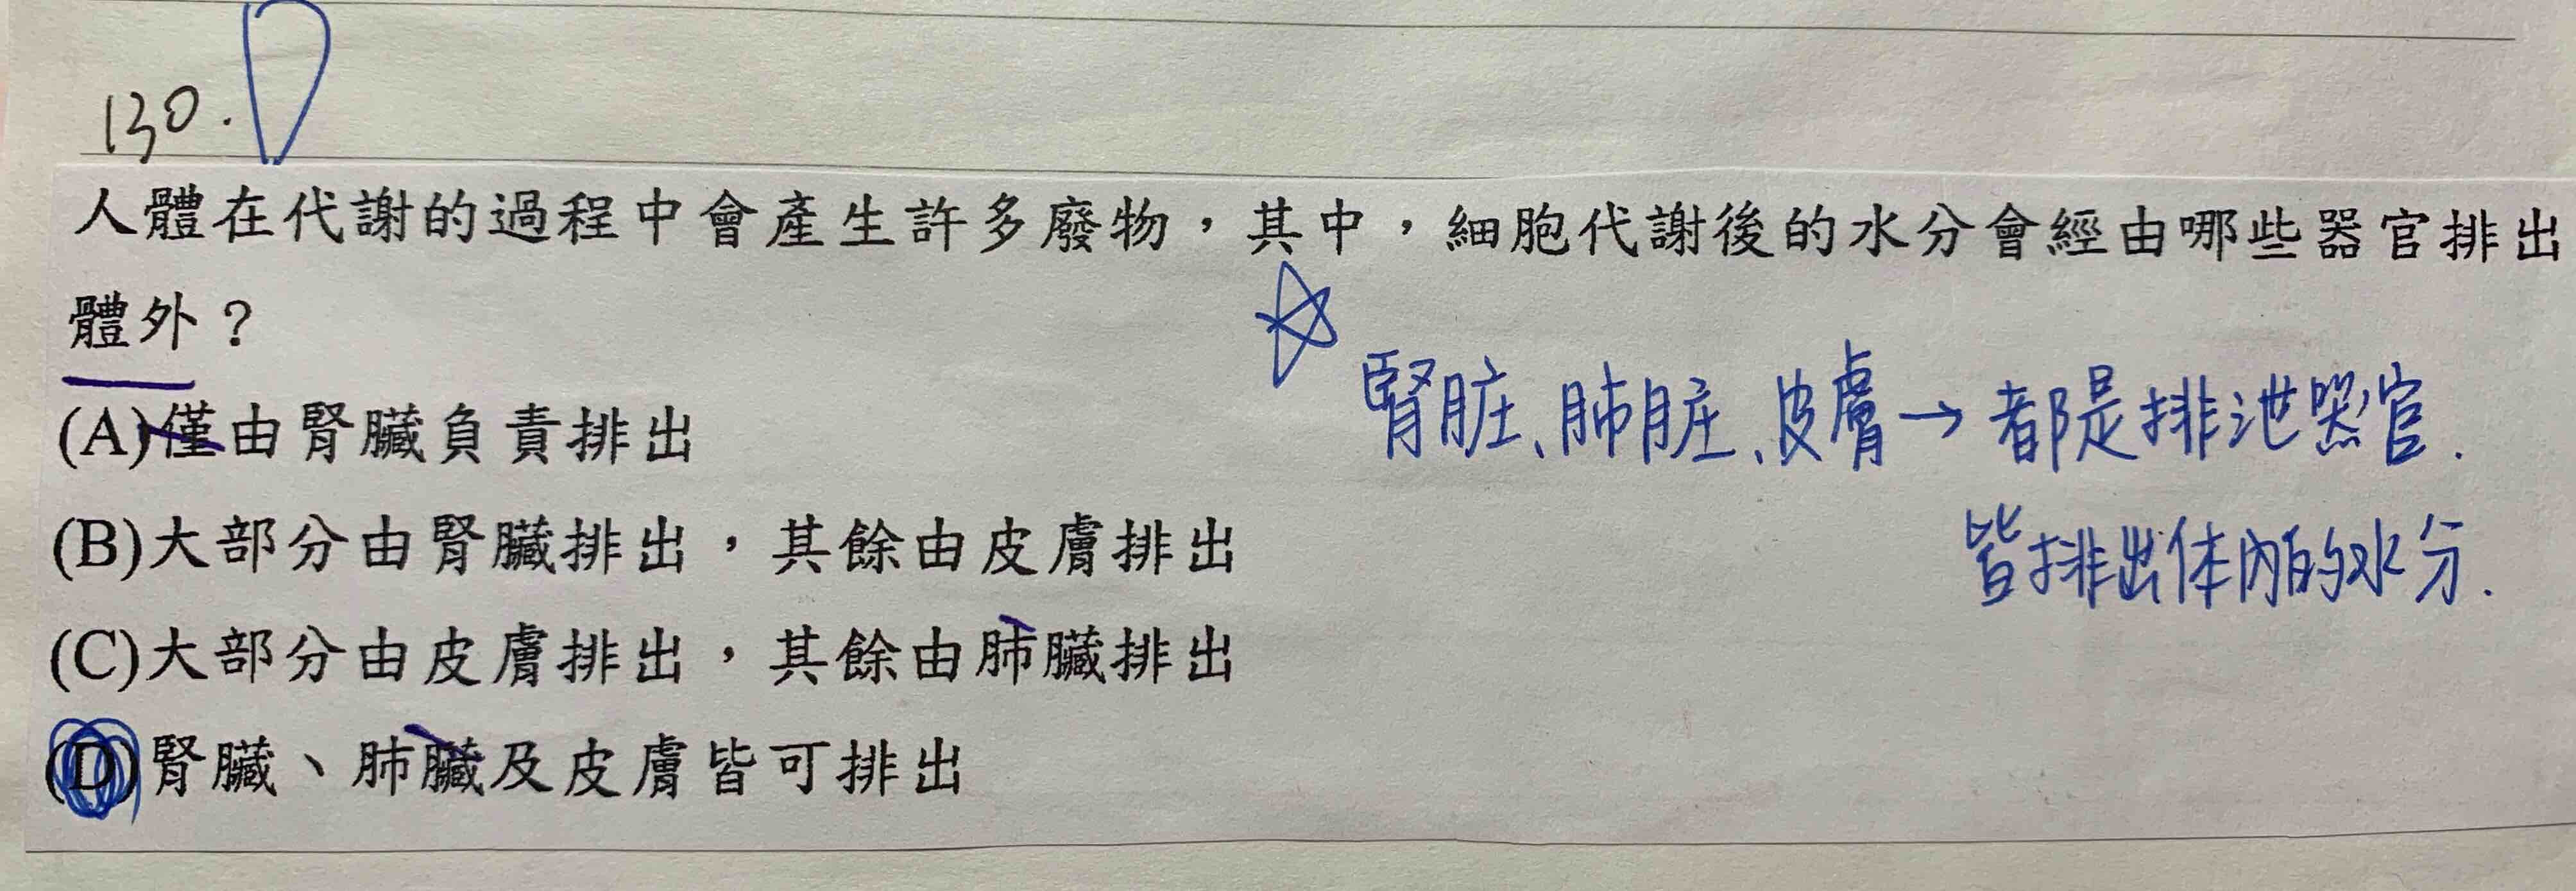 130. D
人體在代謝的過程中會產生許多廢物，其中，細胞代謝後的水分會經由哪些器官排出
體外？
(A)僅由腎臟負責排出
腎脏、肺脏、皮膚→都是排泄器官.
(B)大部分由腎臟排出，其餘由皮膚排出
皆排出体內的水分.
(C)大部分由皮膚排出，其餘由肺臟排出
(D)腎臟、肺臟及皮膚皆可排出